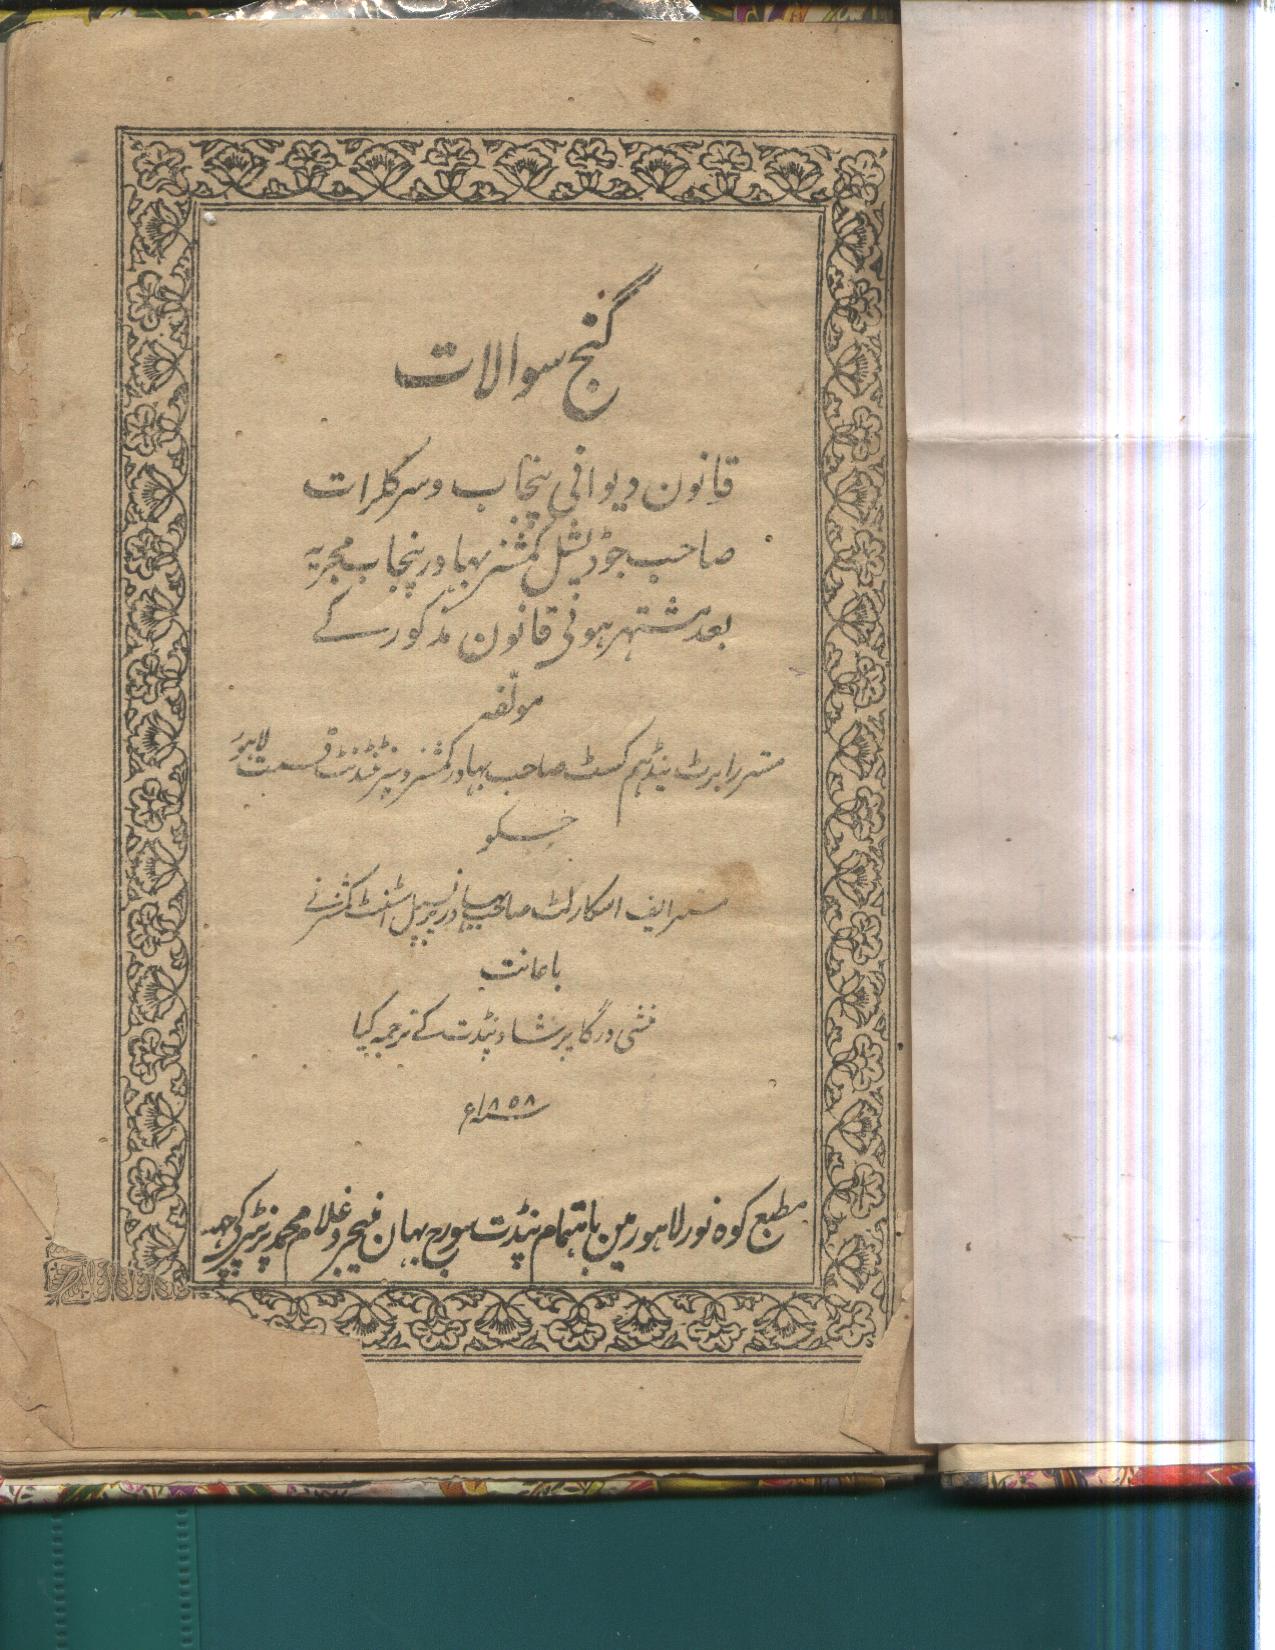 گنج سوالات
قانون دیوانی پنجاب و سرکلرات
صاحب جوڈیشل کمشنر بہادر پنجاب مجریہ
بعد مشتہر ہونی قانون مذکور کے
مولفہ
مسٹر رابرٹ نیڈہم کسٹ صاحب بہادر کمشنر و سپرنٹنڈنٹ قسمت لاہور
جسکو
مسٹر ایف اسکارلٹ صاحب بہادر پرنسپل اسٹنٹ کمشنر نے
باعانت
منشی درگا پرشاد پنڈت کے ترجمہ کیا
سنہ ۱۸۵۸ء
مطبع کوہ نور لاہور مین باہتمام پنڈت سورج بہان منیجر و غلام محمد پرنٹر کی چھپی